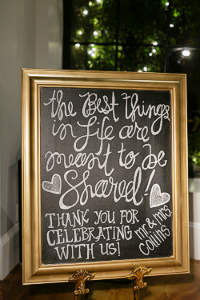 the Best things
in Life are
meant to be
Shared!
THANK YOU FOR
CELEBRATING
WITH US!
mr & mrs
Collins